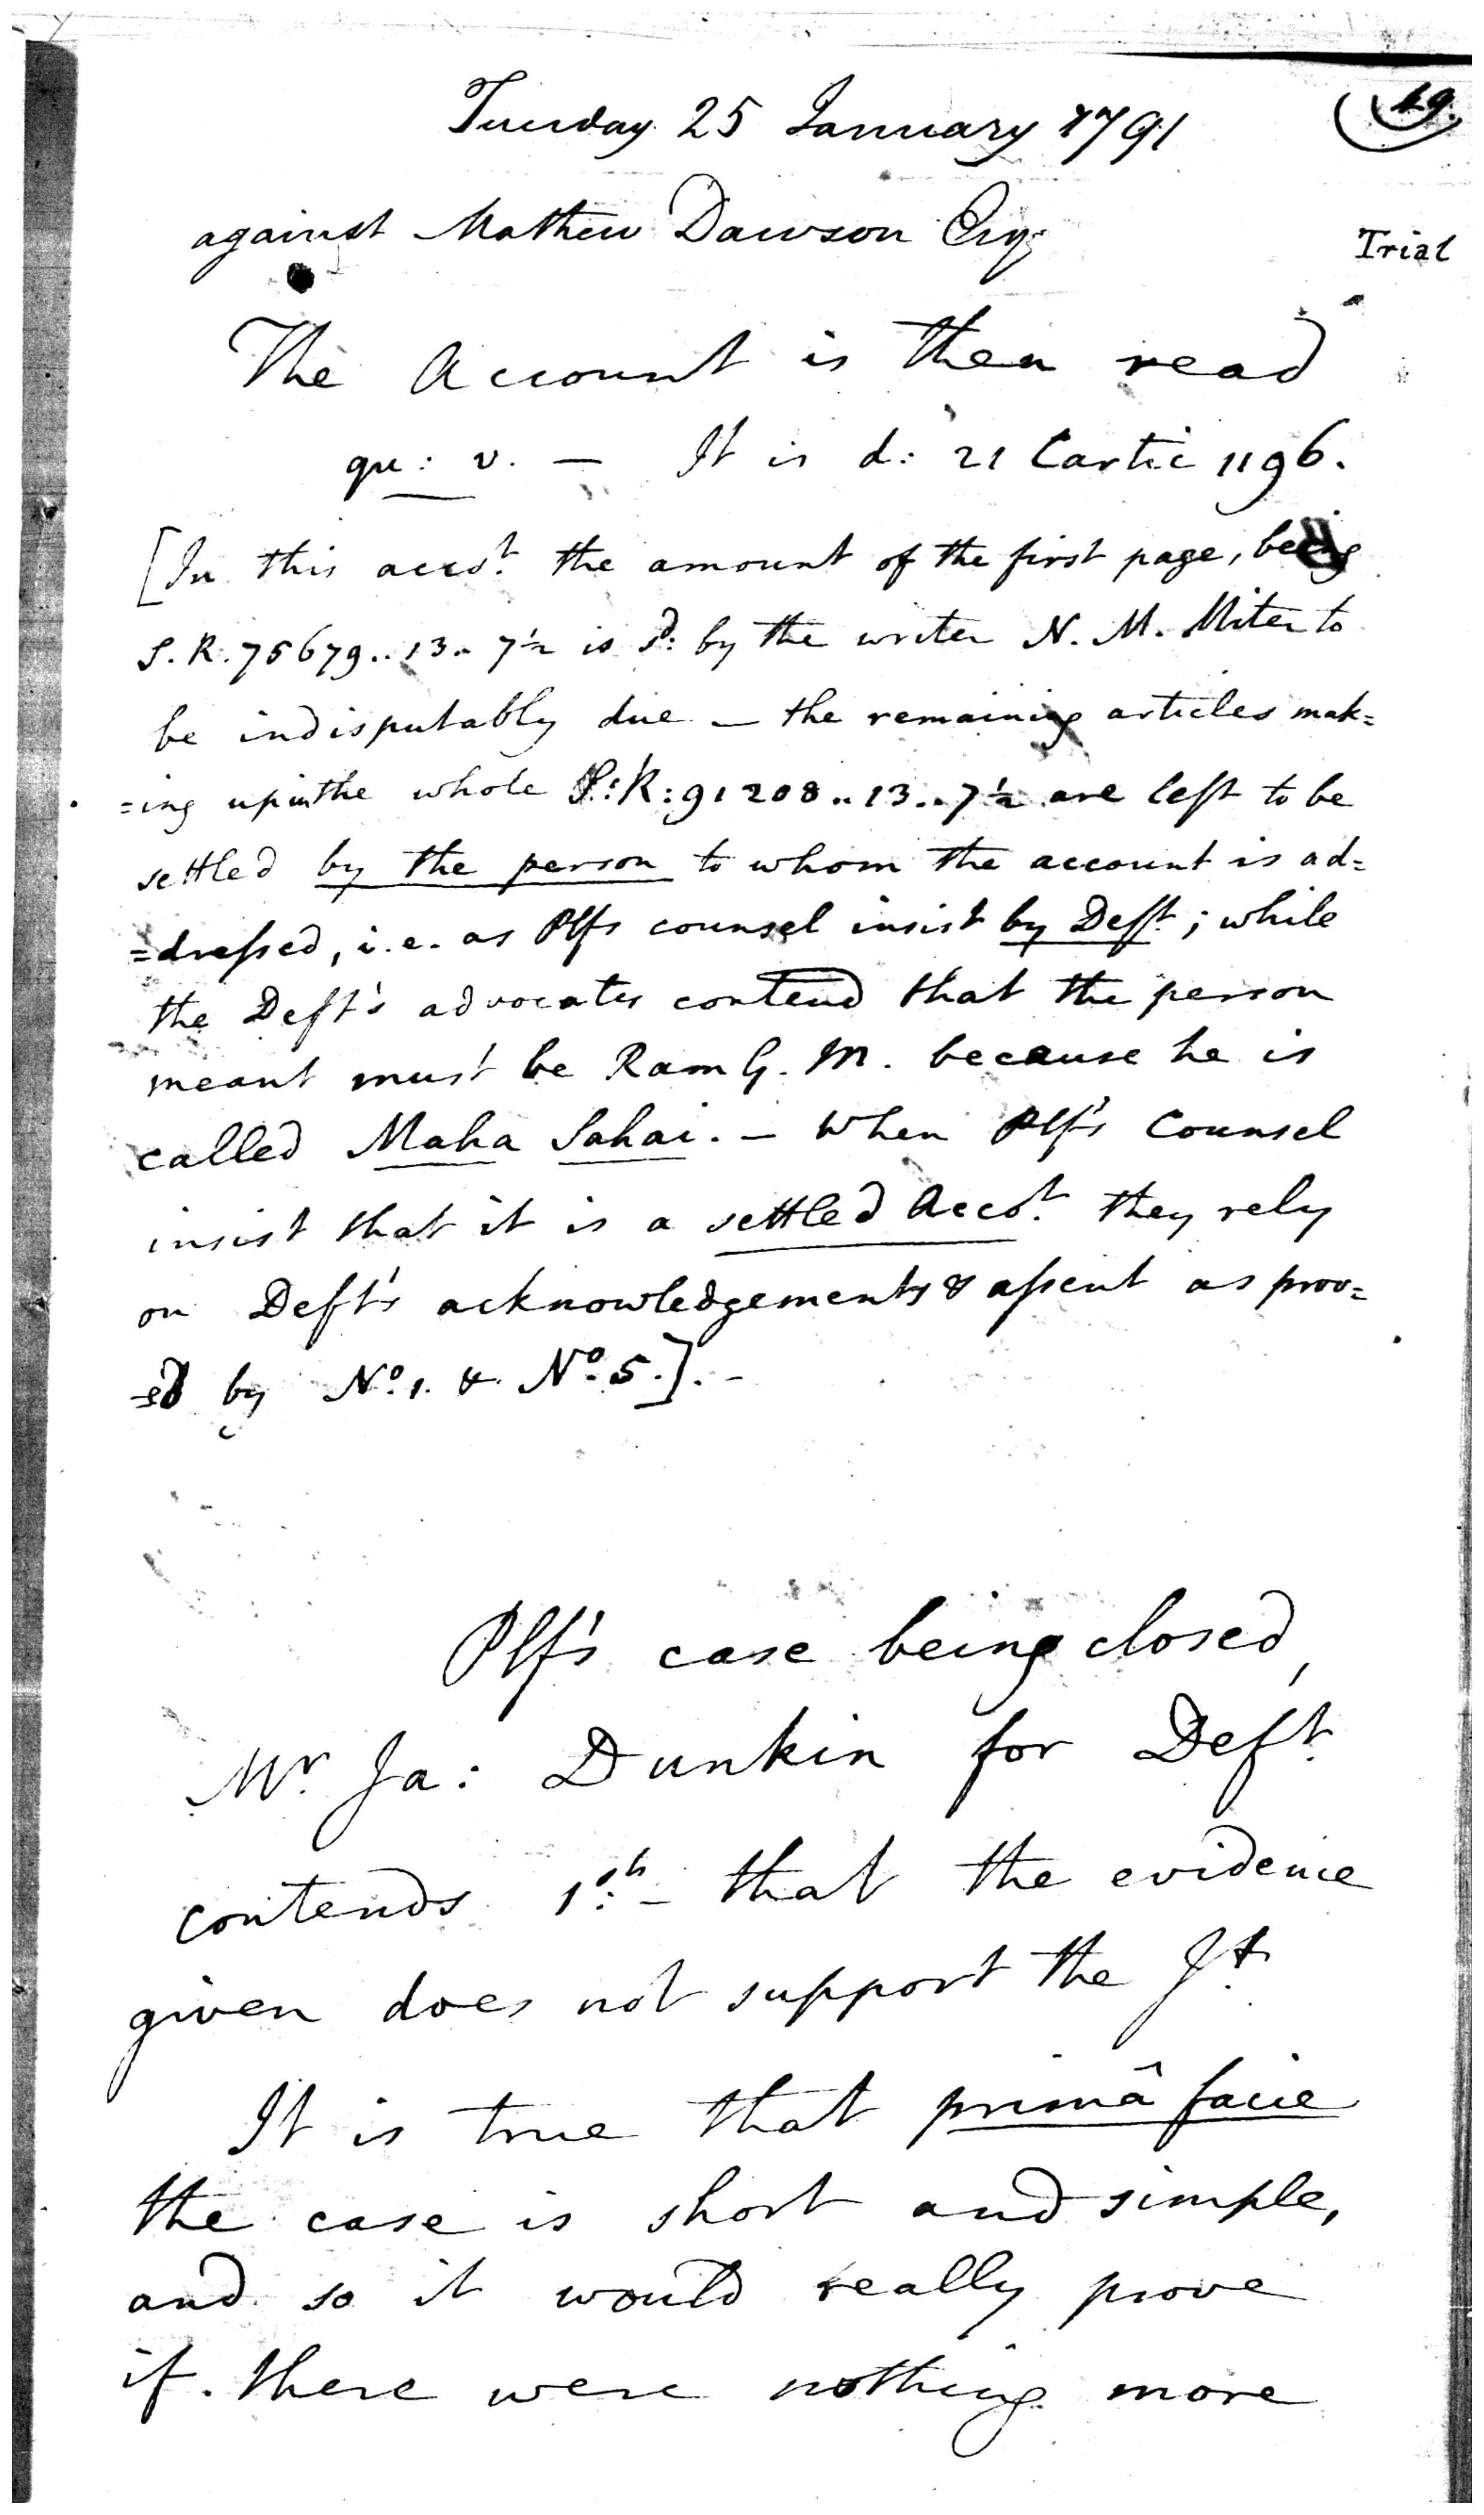 Tuesday 25 January 1791
19.
against Mathew Dawson Esq
Trial
The Account is then read
qu: v. — It is d: 21 Cartic 1196.
[In this acco.t the amount of the first page, being
S.R. 75679..13.. 7½ is s.d: by the writer N. M. Miter to
be indisputably due — the remaining articles mak=
=ing up in the whole S:R: 91208..13..7½ are left to be
settled by the person to whom the account is ad=
=dressed, i.e. as Plfs counsel insist by Deft.; while
the Deft's advocates contend that the person
meant must be Ram G. M. because he is
called Maha Sahai. — When Plf's Counsel
insist that it is a settled Acco.t they rely
on Deft's acknowledgements & assent as prov=
=ed by No. 1. & No. 5.]. -
Plf's case being closed,
Mr. Ja: Dunkin for Deft.
contends 1.st — that the evidence
given does not support the J.t
It is true that primâ facie
the case is short and simple,
and so it would really prove
if there were nothing more